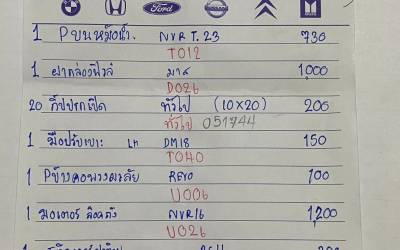 Ford
1 Pขนหม้อน้ำ NVR T.23 730
T012
1 ฝากล่องฟิวส์ มาส 1,000
D026
20 กิ๊ปปะกะเปิด ทั่วไป (10x20) 200
ทั่วไป 051744
1 มือปรับเบาะ LH DM18 150
T040
1 Pข้างคอพวงมาลัย REVO 100
U006
1 มอเตอร์ ล็อคถัง NVR16 1,200
U026
1